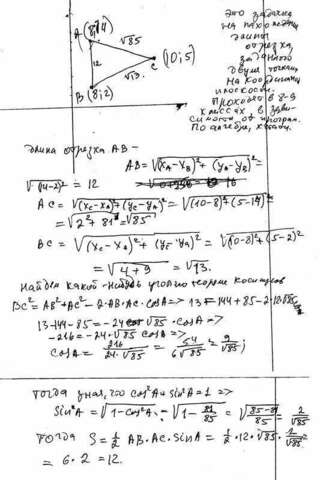 A(8;14)
√85
12
C (10;5)
√13
B(8;2)
это задачка
на нахождение
длины
отрезка,
заданного
двумя точками
на координатной
плоскости.
Проходят в 8-9
классах, в зави-
симости от програм.
По алгебре, кстати.
длина отрезка AB -
AB = √(xA-xB)²+(yA-yB)² =
√(14-2)² = 12
AC = √(xC-xA)²+(yC-yA)² = √(10-8)²+(5-14)² =
= √2²+81 = √85
BC = √(xC-xB)²+(yC-yB)² = √(10-8)²+(5-2)²
= √4+9 = √13.
Найдем какой-нибудь угол по теореме косинусов
BC² = AB²+AC²-2·AB·AC·cosA => 13=144+85-2·12·√85
13-144-85 = -24√85·cosA =>
-216 = -24·√85 cosA =>
cosA = 216/24·√85 = 54/6√85 = 9/√85;
тогда зная, что cos²A+sin²A=1 =>
sin²A = √1-cos²A = √1-81/85 = √85-81/85 = 2/√85
тогда S = 1/2 AB·AC·sinA = 1/2·12·√85·2/√85
= 6·2 = 12.